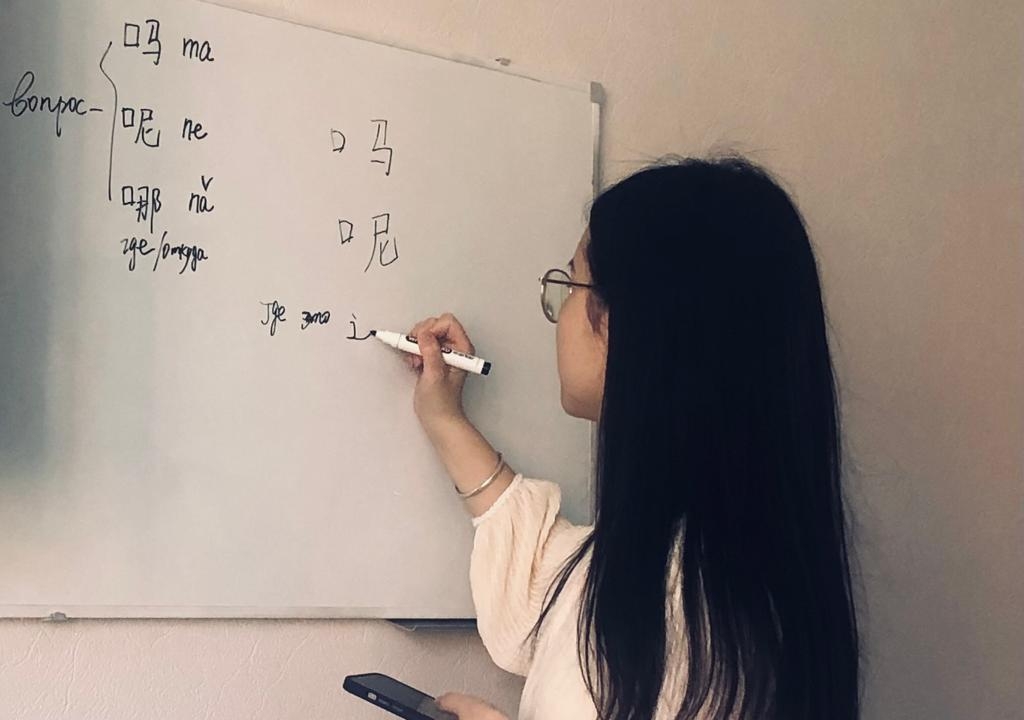 вопрос - 吗 ma
呢 ne
哪 nǎ
где/откуда
口 马
口 尼
Где это